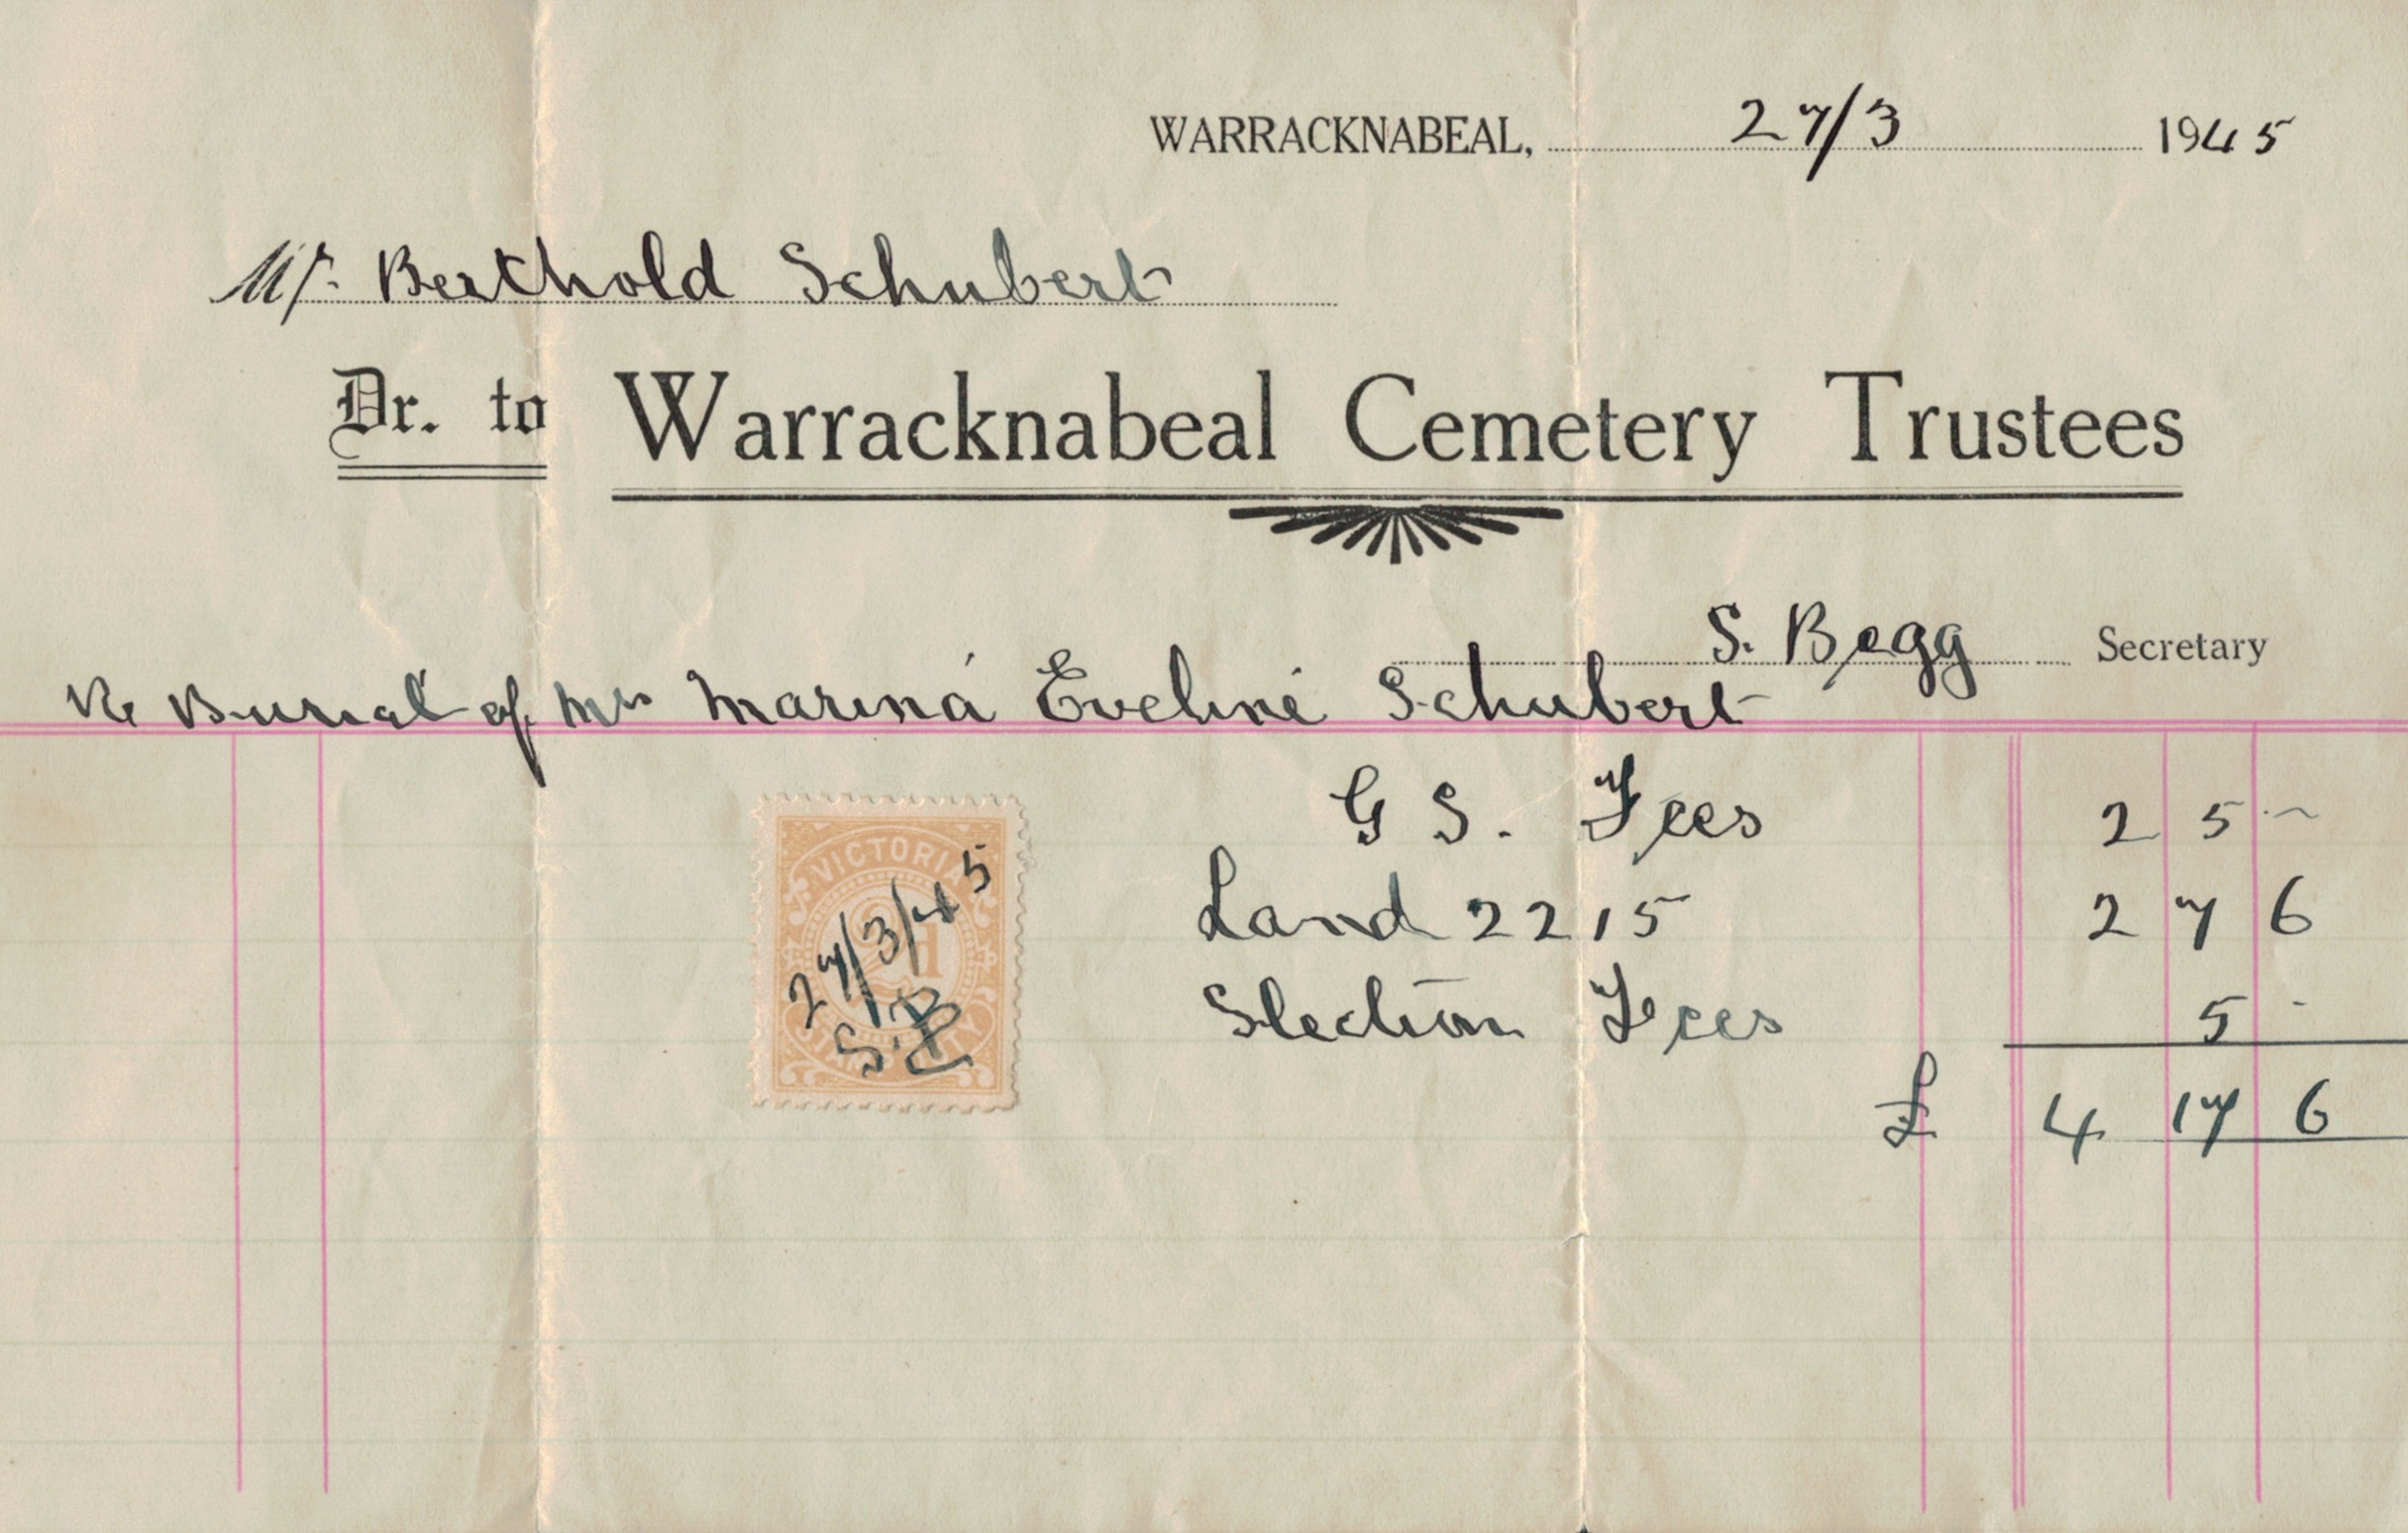 WARRACKNABEAL, 27/3 1945
Mr. Berthold Schubert
Dr. to Warracknabeal Cemetery Trustees
S. Begg Secretary
Re Burial of Mrs Marina Eveline Schubert
G S. Fees 2 5 -
Land 2215 2 7 6
Slection Fees 5 -
£ 4 17 6
VICTORIA
27/3/45
S.B